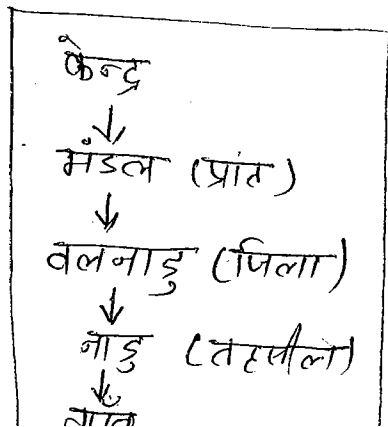 केन्द्र
↓
मंडल (प्रांत)
↓
वलनाडु (जिला)
↓
नाडु (तहसील)
↓